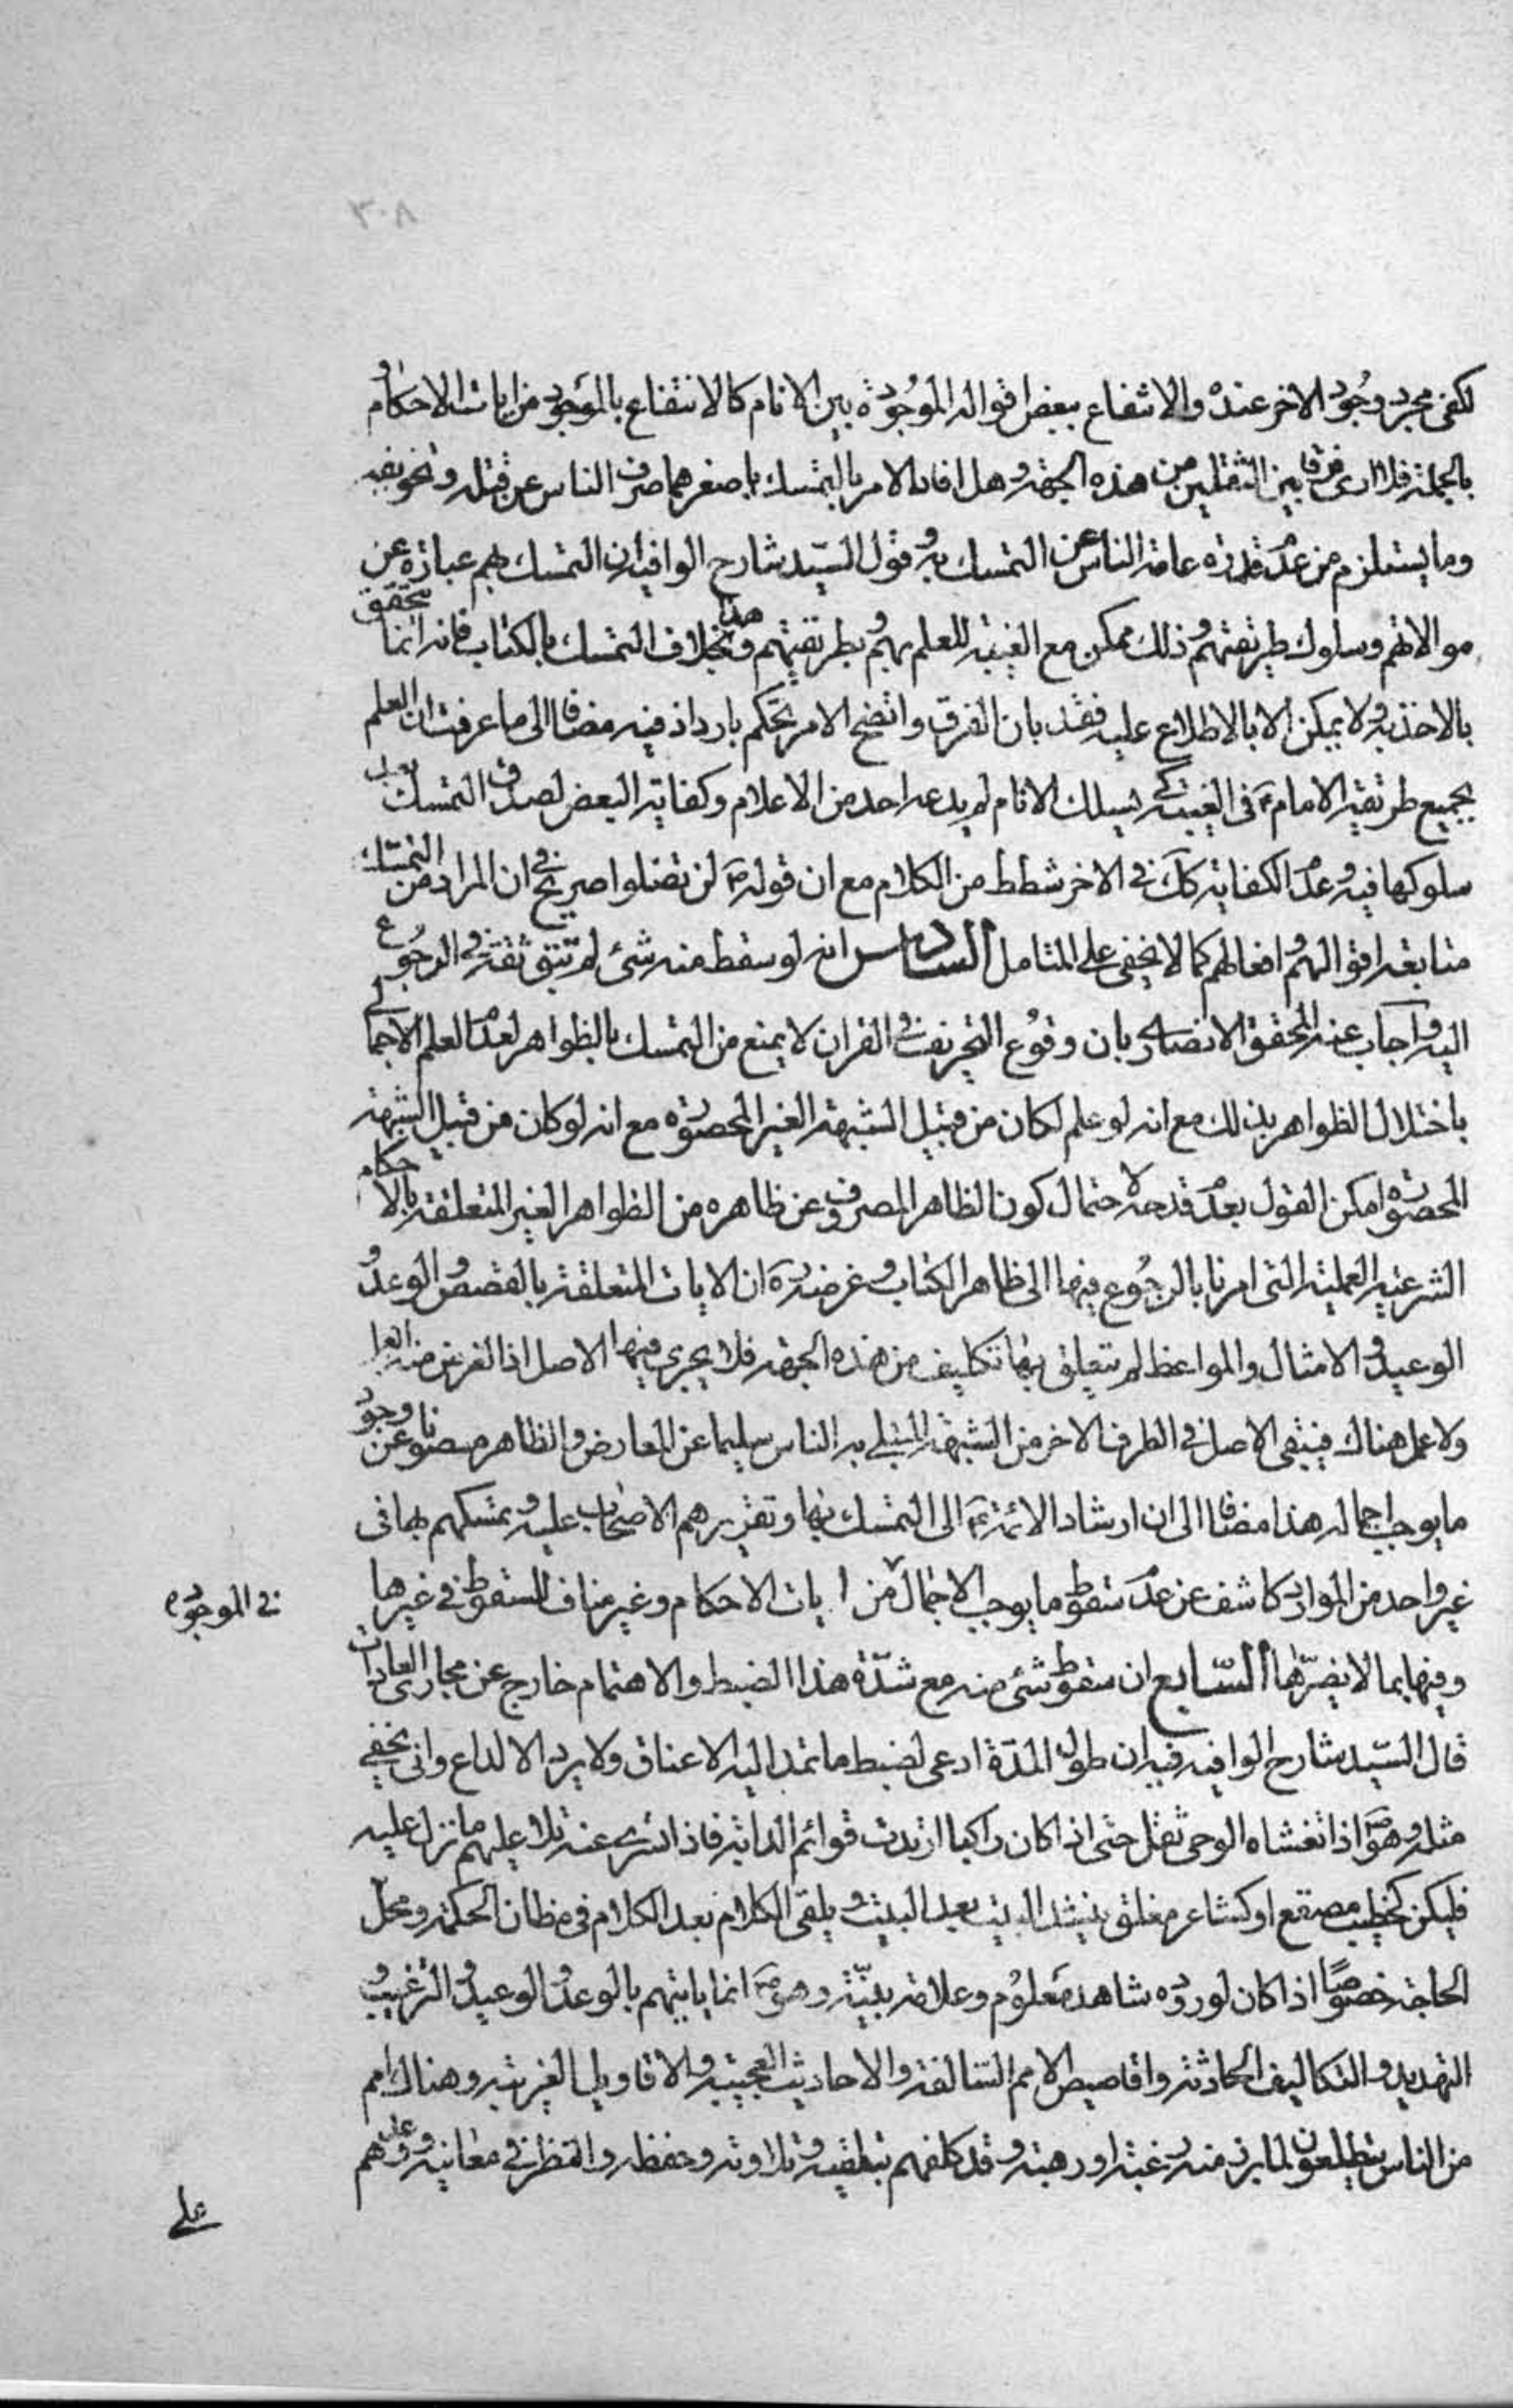 ٣٠٨
لكفى مجرد وجود الاخر عنده والانتفاع ببعض اقواله الموجودة بين الانام كالانتفاع بالموجود من ايات الاحكام و
بالجملة فلا ارى فرقا بين الثقلين من هذه الجهة وهل افاد الامر بالتمسك باصغرهما صرف الناس عن قتله وتخويفه
وما يستلزم من عدم قدرة عامة الناس عن التمسك به وقول السيد شارح الوافية ان التمسك بهم عبارة عن
موالاتهم وسلوك طريقتهم وذلك ممكن مع الغيبة للعلم بهم وبطريقتهم وهذا بخلاف التمسك بالكتاب فانه انما يتحقق
بالاخذ به ولا يمكن الا بالاطلاع عليه فقد بان الفرق واتضح الامر تحكم بارد اذ فيه مضافا الى ما عرفت ان العلم
بجميع طريقة الامام ع في الغيبة كي يسلك الانام لم يدعه احد من الاعلام وكفاية البعض لصدق التمسك
سلوكها فيه وعدم الكفاية كك في الاخر شطط من الكلام مع ان قوله ص لن تضلوا صريح في ان المراد من التمسك
متابعة اقوالهم وافعالهم كما لا يخفى على المتامل السادس انه لو سقط منه شئ لم تبق ثقة في الرجوع
اليه واجاب عنه المحقق الانصاري بان وقوع التحريف في القران لا يمنع من التمسك بالظواهر لعدم العلم الاجمالي
باختلال الظواهر بذلك مع انه لو علم لكان من قبيل الشبهة الغير المحصورة مع انه لو كان من قبيل الشبهة
المحصورة امكن القول بعدم قدحه لاحتمال كون الظاهر المصروف عن ظاهره من الظواهر الغير المتعلقة بالاحكام
الشرعية العملية التي امرنا بالرجوع فيها الى ظاهر الكتاب وغرضه ره ان الايات المتعلقة بالقصص والوعد و
الوعيد والامثال والمواعظ لم يتعلق بها تكليف من هذه الجهة فلا يجري فيها الاصل اذ الغرض منه العمل
ولا عمل هناك فيبقى الاصل في الطرف الاخر من الشبهة المبتلى به الناس سليما عن المعارض والظاهر مصونا عن وجود
ما يوجب اجماله هذا مضافا الى ان ارشاد الائمة ع الى التمسك بها وتقريرهم الاصحاب عليه وتمسكهم بها في
غير واحد من الموارد كاشف عن عدم سقوط ما يوجب الاجمال من ايات الاحكام وغير مناف للسقوط في غيرها
في الموجودة
وفيها بما لا يضرها السابع ان سقوط شئ منه مع شدة هذا الضبط والاهتمام خارج عن مجاري العادات
قال السيد شارح الوافية فيه ان طول المدة ادعى لضبط ما تمد اليه الاعناق ولا يرد الا لداع وانى يخفى
مثله وهو ص اذا تغشاه الوحي ثقل حتى اذا كان راكبا ارتدت قوائم الدابة فاذا سرى عنه تلا عليهم ما نزل عليه
فليكن كخطيب مصقع او كشاعر مفلق ينشد البيت بعد البيت ويلقى الكلام بعد الكلام في مظان الحكمة ومحل
الحاجة خصوصًا اذا كان لوروده شاهد معلوم وعلامة بينة وهو ص انما ياتيهم بالوعد والوعيد والترغيب و
التهديد والتكاليف الحادثة واقاصيص الامم السالفة والاحاديث العجيبة والاقاويل الغريبة وهناك امم
من الناس يتطلعون لما برز منه رغبة او رهبة وقد كلفهم بتلقيه وتلاوته وحفظه والنظر في معانيه ووعدهم
على